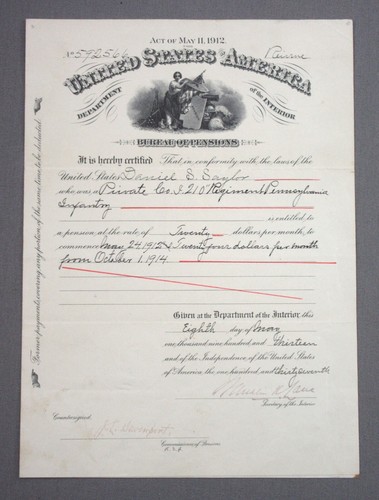 ACT OF MAY 11, 1912.
No 592566
Reissue
UNITED STATES OF AMERICA
DEPARTMENT of the INTERIOR
BUREAU OF PENSIONS
It is hereby certified That in conformity with the laws of the
United States Daniel S. Saylor
who was a Private Co. I 210 Regiment Pennsylvania
Infantry
is entitled to
a pension at the rate of Twenty dollars per month, to
commence May 24 1912 & Twenty four dollars per month
from October 1, 1914.
Given at the Department of the Interior, this
Eighth day of May
one thousand nine hundred and thirteen
and of the Independence of the United States
of America the one hundred and thirty seventh
Secretary of the Interior.
Countersigned.
J. L. Davenport
Commissioner of Pensions.
Former payments covering any portion of the same time to be deducted.